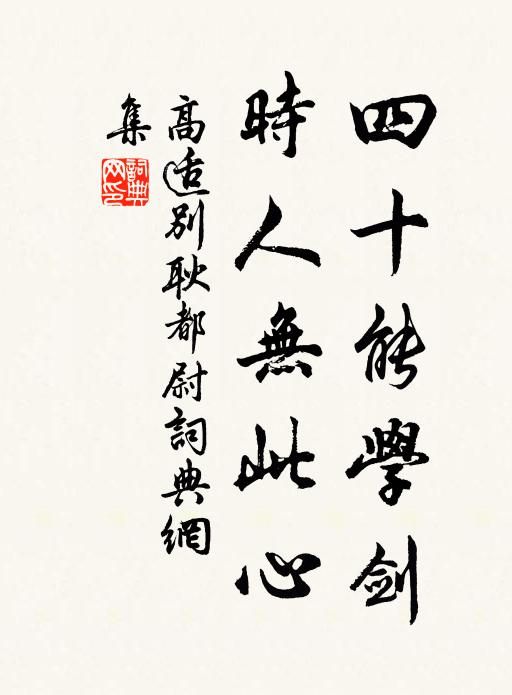 四十能學劍
時人無此心
高适別耿都尉詞典網
集
詞典網印